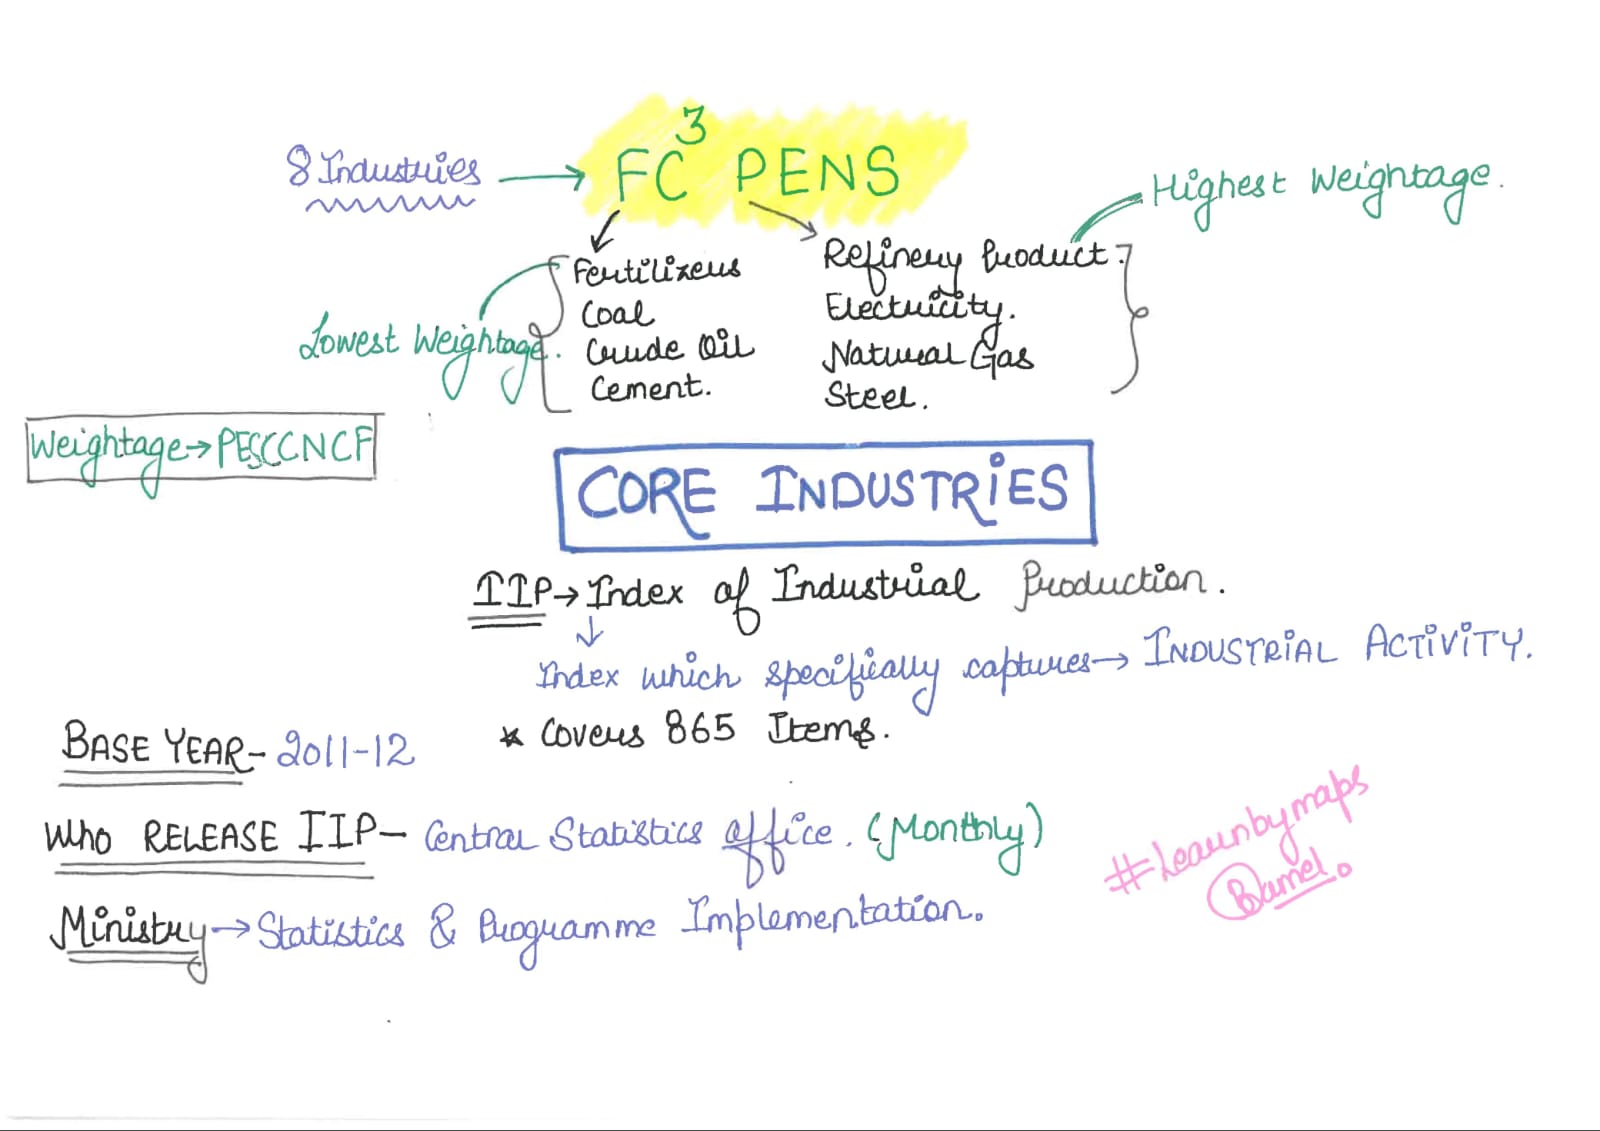 8 Industries → FC³ PENS
Highest Weightage.
Fertilizers
Coal
Crude Oil
Cement.
Refinery Product
Electricity.
Natural Gas
Steel.
Lowest Weightage.
Weightage → PESCCNCF
CORE INDUSTRIES
IIP → Index of Industrial Production.
Index which specifically captures → INDUSTRIAL ACTIVITY.
* Covers 865 Items.
BASE YEAR - 2011-12
Who RELEASE IIP - Central Statistics office. (Monthly)
Ministry → Statistics & Programme Implementation.
#Learnbymaps